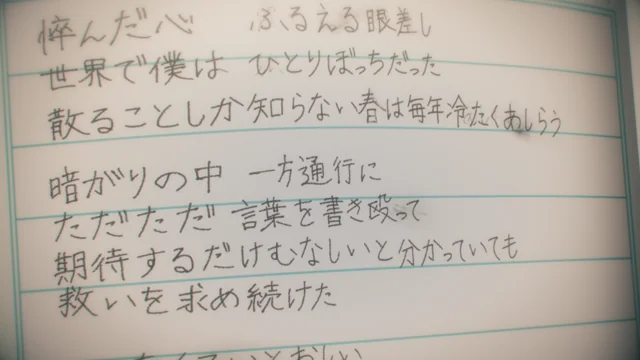 悴んだ心　ふるえる眼差し
世界で僕は　ひとりぼっちだった
散ることしか知らない春は毎年冷たくあしらう
暗がりの中　一方通行に
ただただ　言葉を書き殴って
期待するだけむなしいと分かっていても
救いを求め続けた